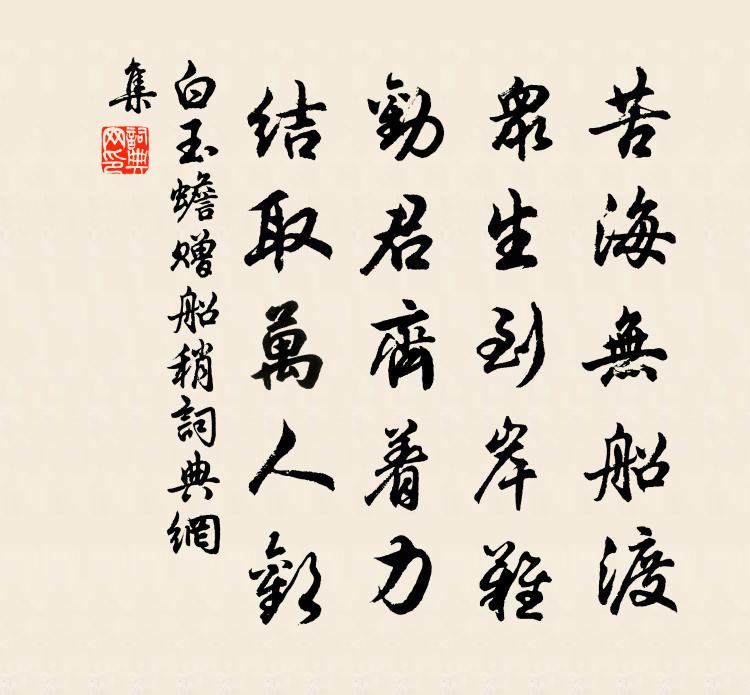 苦海無船渡
眾生到岸難
勸君齊着力
結取萬人歡
白玉蟾贈船稍詞典網
集
詞典網印